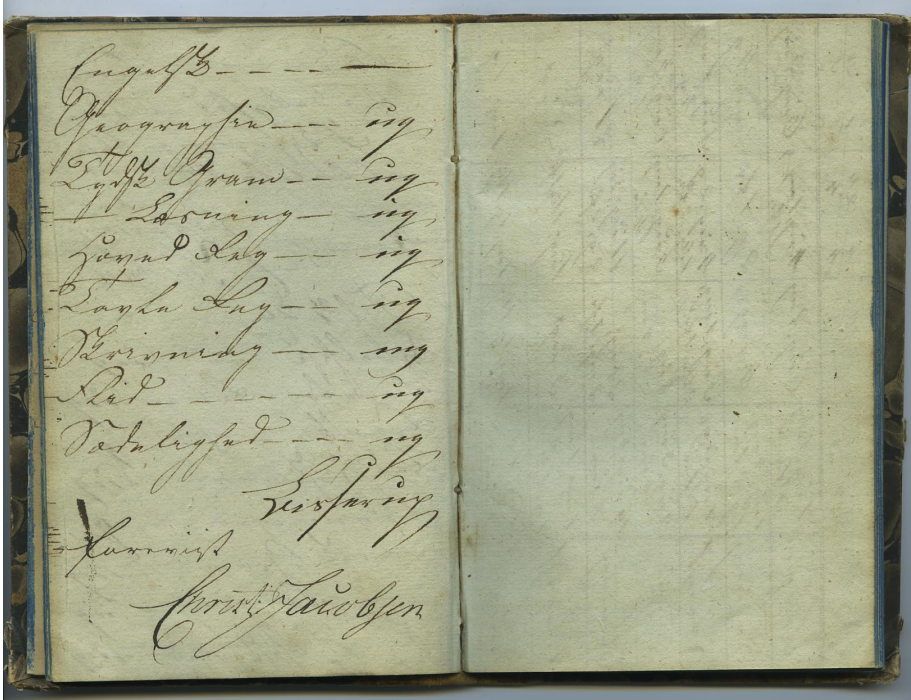 Engelsk - - - - —
Geographie - - - ug
Tydsk Gram - - ug
— Læsning - ug
Hoved Reg - - - ug
Tavle Reg - - - ug
Skrivning - - - mg
Flid - - - - - - - ug
Sædelighed - - - ug
Bisserup
Foreviist
Christ: Jacobsen